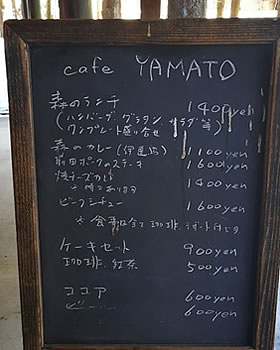 cafe YAMATO
森のランチ 1400yen
(ハンバーグ グラタン サラダ等
ワンプレート盛り合せ)
森のカレー 1100yen
ポークのステーキ 1600yen
焼チーズカレー 1400yen
ビーフシチュー 1600yen
※食事は全て珈琲、デザート付です
ケーキセット 900yen
珈琲・紅茶 500yen
ココア 600yen
ビール 600yen